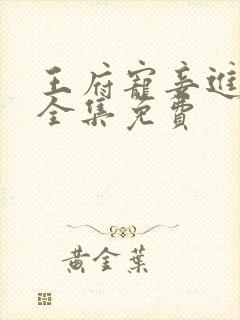 王府寵妾進
全集免費
黃金葉